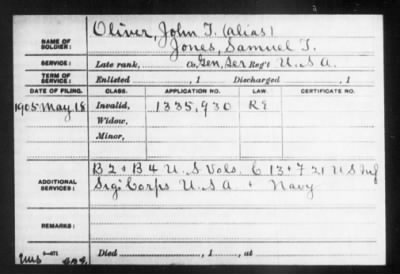 NAME OF SOLDIER: Oliver, John T. (alias)
Jones, Samuel T.
SERVICE: Late rank, Co. Gen, Ser Reg't U. S. A.
TERM OF SERVICE: Enlisted , 1 Discharged , 1
DATE OF FILING. CLASS. APPLICATION NO. LAW. CERTIFICATE NO.
1905 May 18 Invalid, 1335,930
Widow,
Minor,
B 2 + B 4 U. S Vols. C 13 + 7 21 U S Inf
ADDITIONAL SERVICES: Sig Corps U. S A + Navy
REMARKS:
Died , 1 , at